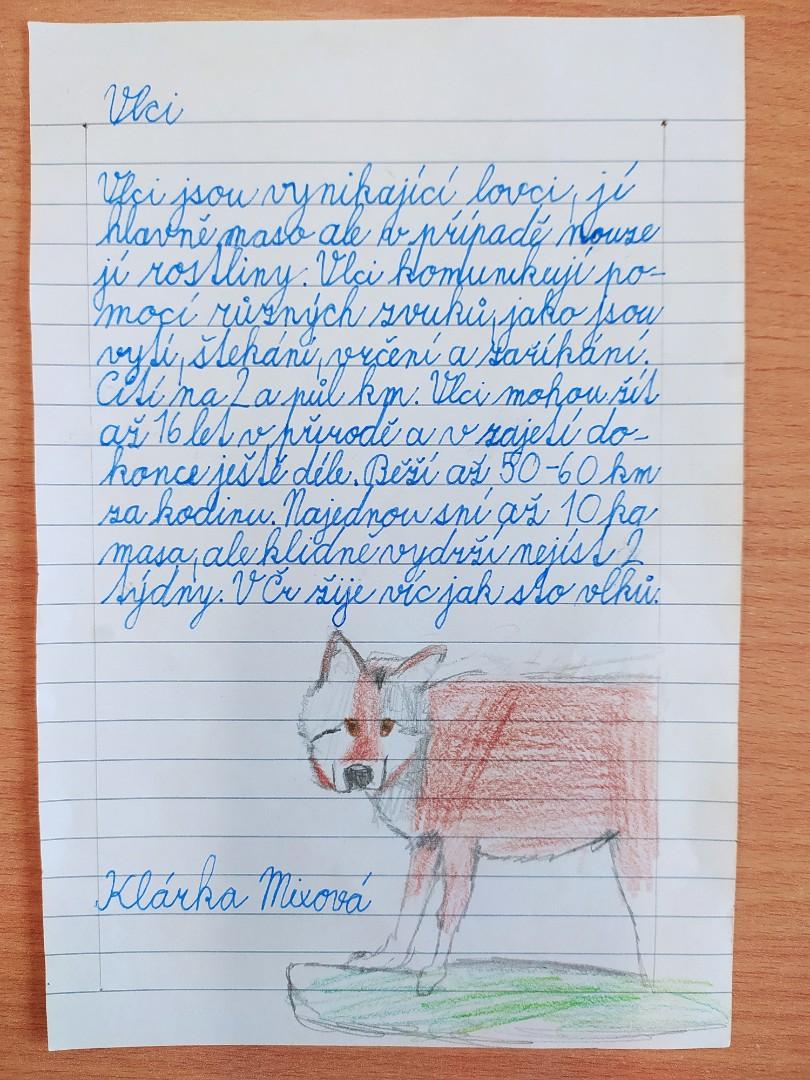 Vlci
Vlci jsou vynikající lovci, jí
hlavně maso ale v případě nouze
jí rostliny. Vlci komunikují po-
mocí různých zvuků, jako jsou
vytí, štekání, vrčení a zaříkání.
Cítí na 2 a půl km. Vlci mohou žít
až 16 let v přírodě a v zajetí do-
konce ještě déle. Běží až 50-60 km
za hodinu. Najednou sní až 10 kg
masa, ale klidně vydrží nejíst 2
týdny. V Čr žije víc jak sto vlků.
Klárka Mixová